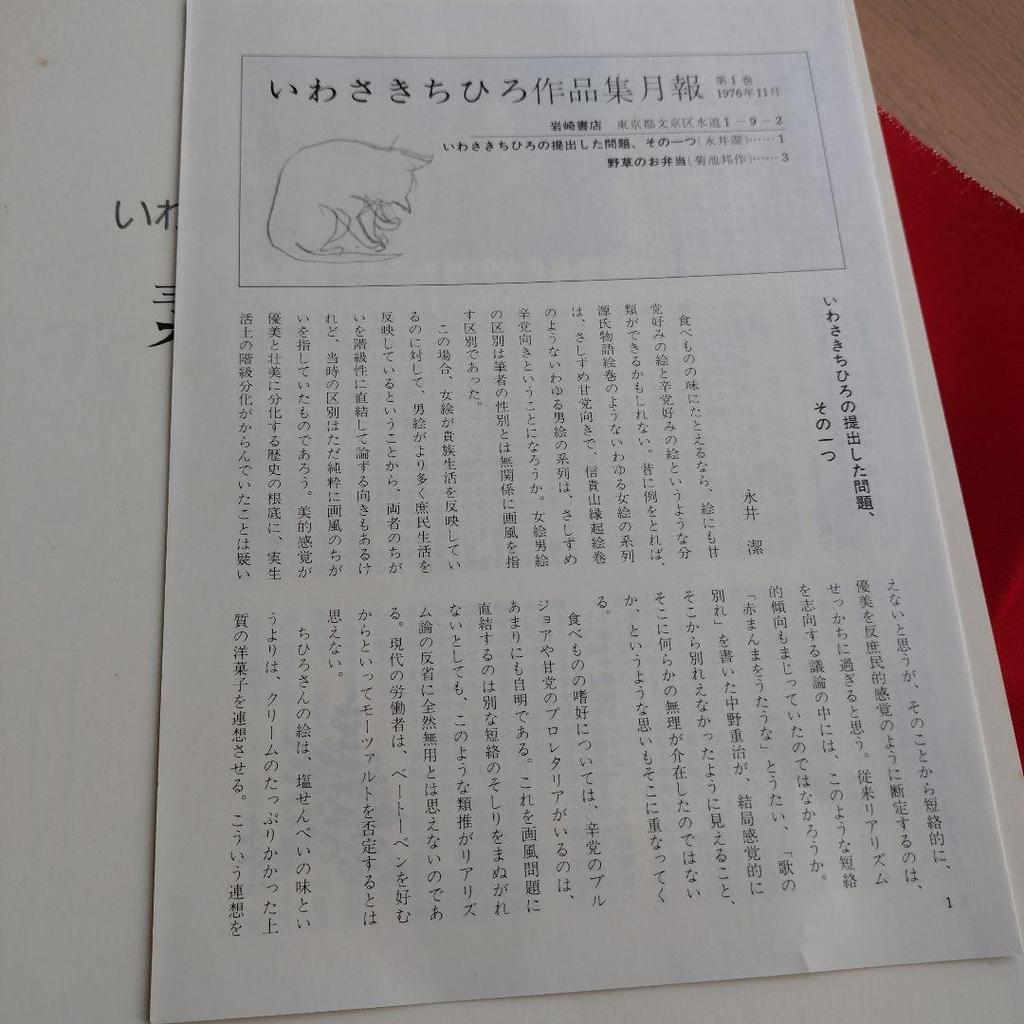 いわさきちひろ作品集月報
第1巻
1976年11月
岩崎書店 東京都文京区水道1-9-2
いわさきちひろの提出した問題、その一つ(永井潔)……1
野草のお弁当(菊池邦作)……3
いわさきちひろの提出した問題、
その一つ
永井 潔
食べものの味にたとえるなら、絵にも甘
党好みの絵と辛党好みの絵というような分
類ができるかもしれない。昔に例をとれば、
源氏物語絵巻のようないわゆる女絵の系列
は、さしずめ甘党向きで、信貴山縁起絵巻
のようないわゆる男絵の系列は、さしずめ
辛党向きということになろうか。女絵男絵
の区別は筆者の性別とは無関係に画風を指
す区別であった。
この場合、女絵が貴族生活を反映してい
るのに対して、男絵がより多く庶民生活を
反映しているということから、両者のちが
いを階級性に直結して論ずる向きもあるけ
れど、当時の区別はただ純粋に画風のちが
いを指していたものであろう。美的感覚が
優美と壮美に分化する歴史の根底に、実生
活上の階級分化がからんでいたことは疑い
えないと思うが、そのことから短絡的に、
優美を反庶民的感覚のように断定するのは、
せっかちに過ぎると思う。従来リアリズム
を志向する議論の中には、このような短絡
的傾向もまじっていたのではなかろうか。
「赤まんまをうたうな」とうたい、「歌の
別れ」を書いた中野重治が、結局感覚的に
そこから別れえなかったように見えること、
そこに何らかの無理が介在したのではない
か、というような思いもそこに重なってく
る。
食べものの嗜好については、辛党のブル
ジョアや甘党のプロレタリアがいるのは、
あまりにも自明である。これを画風問題に
直結するのは別な短絡のそしりをまぬがれ
ないとしても、このような類推がリアリズ
ム論の反省に全然無用とは思えないのであ
る。現代の労働者は、ベートーベンを好む
からといってモーツァルトを否定するとは
思えない。
ちひろさんの絵は、塩せんべいの味とい
うよりは、クリームのたっぷりかかった上
質の洋菓子を連想させる。こういう連想を
1
いわ